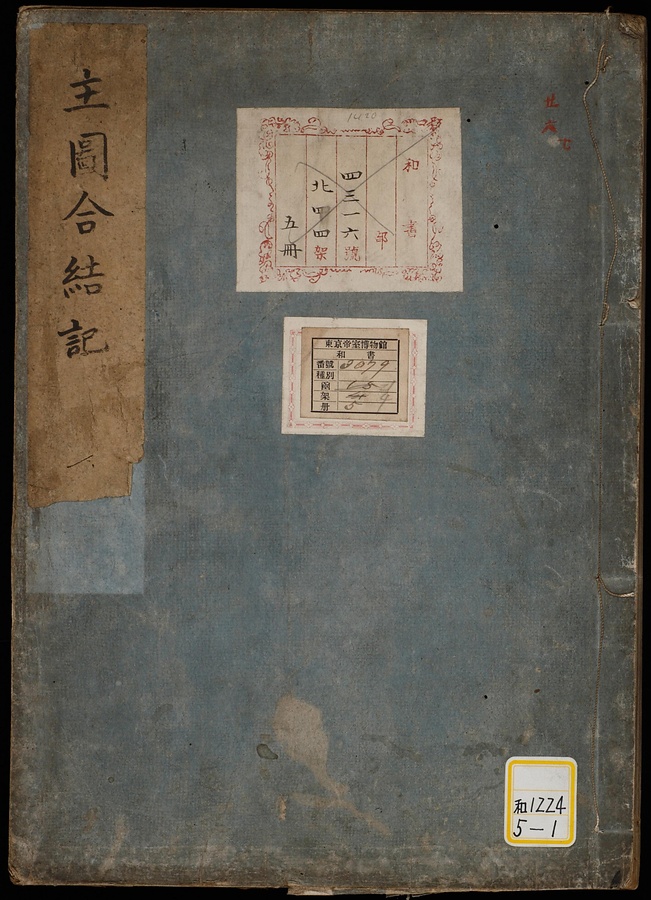 主圖合結記
和書
部
四三一六號
北四四架
五冊
東京帝室博物館
和書
番號 3079
種別
函
架
册 5
和1224
5-1